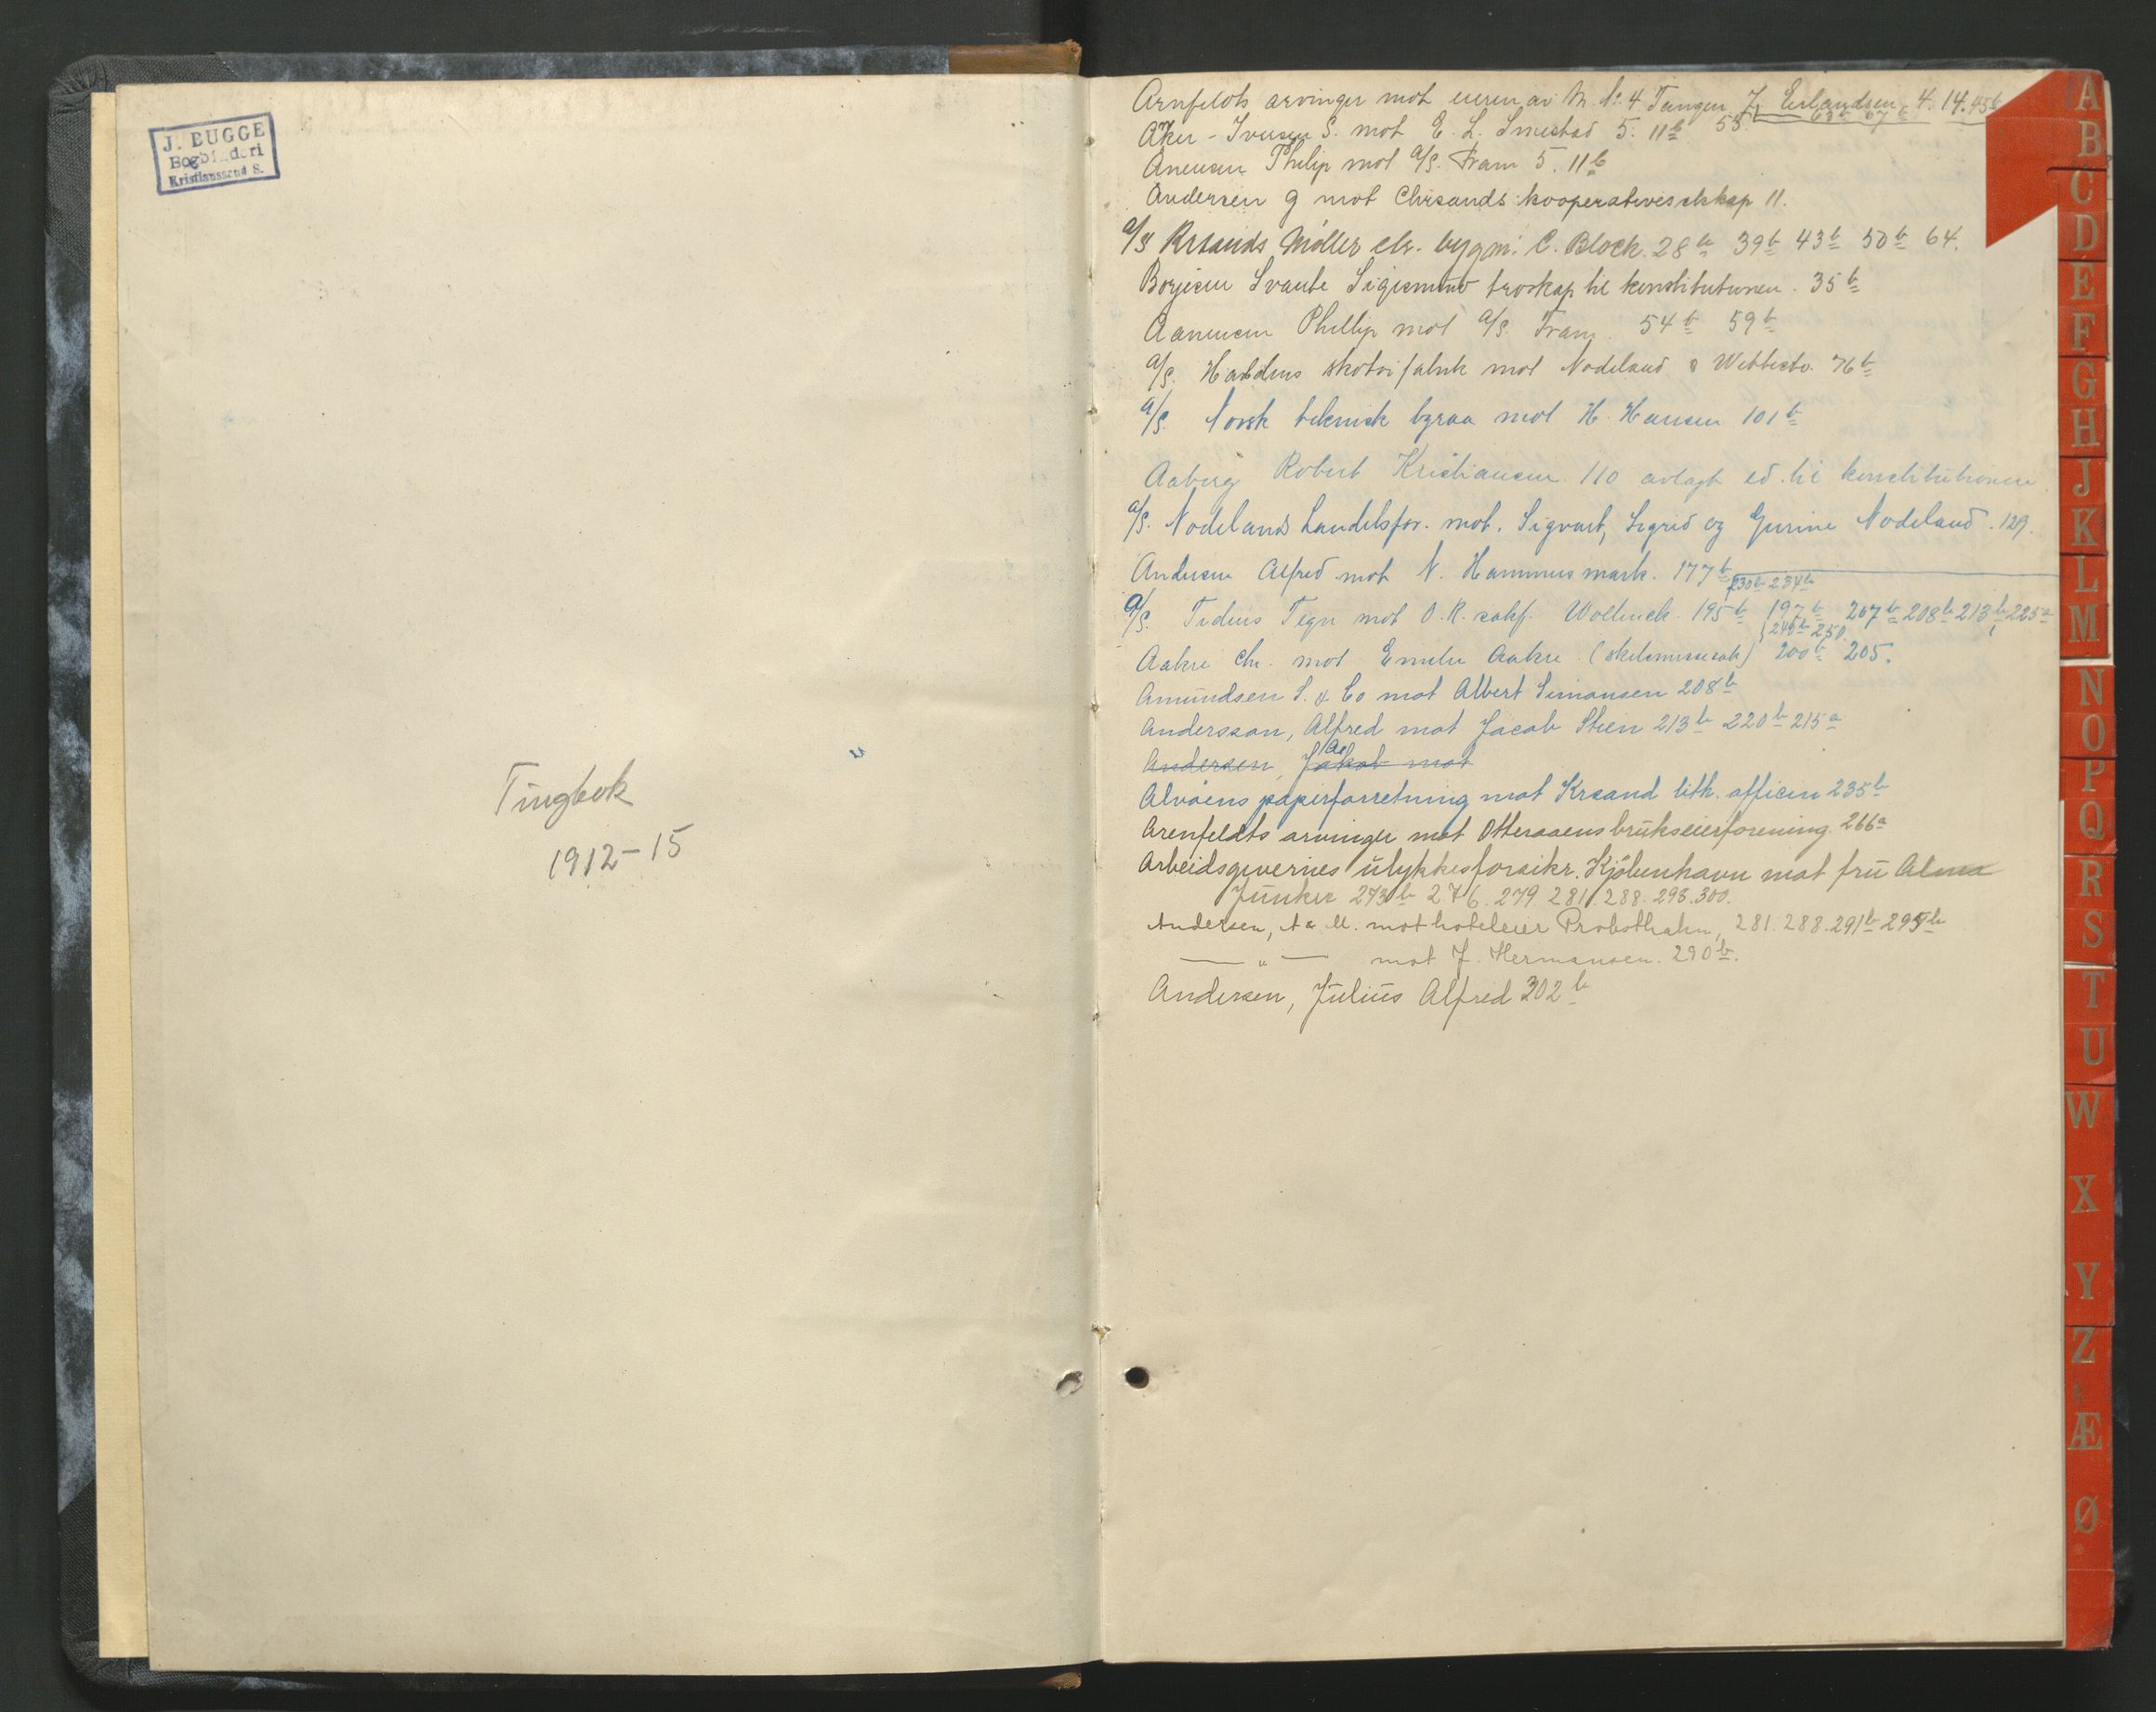 J. BUGGE
Bogbinderi
Kristianssand S.
Tingbok
1912-15
Arnfeldts arvinger mot eieren av M. No 4 Tangen J. Erlandsen 4. 14. 45b
63b 67b
Aker-Iversen S. mot E. L. Smestad 5. 11b 55
Anensen Philip mot a/s. Fram 5. 11b
Andersen G mot Chrsands kooperativeselskap 11.
a/s Krsands Møller etr. bygm. C. Block. 28b 39b 43b 50b 64.
Borjesen Svante Sigismund troskap til konstitutionen. 35b
Aanensen Phillip mot a/s. Fram 54b 59b
a/s. Haldens skotøifabrik mot Nodeland & Wetlesto. 76b
a/s. Norsk teknisk byraa mot H. Hansen 101b
Aaberg Robert Kristiansen 110 avlagt ed til konstitutionen.
a/s. Nodelands Landelsfor. mot. Sigvart, Sigrid og Gurine Nodeland. 129.
Andersen Alfred mot N. Hammersmark. 177b
230b 234b
a/s. Tidens Tegn mot O.R. sakf. 195b 197b 207b 208b 213b 225a
249b 250
Aakre Chr. mot Emelie Aakre (skilsmissesak) 200b 205.
Amundsen S. & Co mot Albert Simonsen 208b
Andersson, Alfred mot Jacob Steen 213b 220b 215a
Andersen, Jakob mot
Alvøens papirforretning mot Krsand lith. officin 235b
Arenfeldts arvinger mot Otteraaens brukseierforening. 266a
Arbeidsgivernes ulykkesforsikr. Kjøbenhavn mot fru Alma
Junker 273b 276. 279. 281. 288. 298. 300.
Andersen, A & M. mot hoteleier Probsthahn, 281. 288. 291b 295b
— " — mot J. Hermansen. 290b.
Andersen, Julius Alfred 302b
A
B
C
D
E
F
G
H
J
K
L
M
N
O
P
Q
R
S
T
U
W
X
Y
Z
Æ
Ø